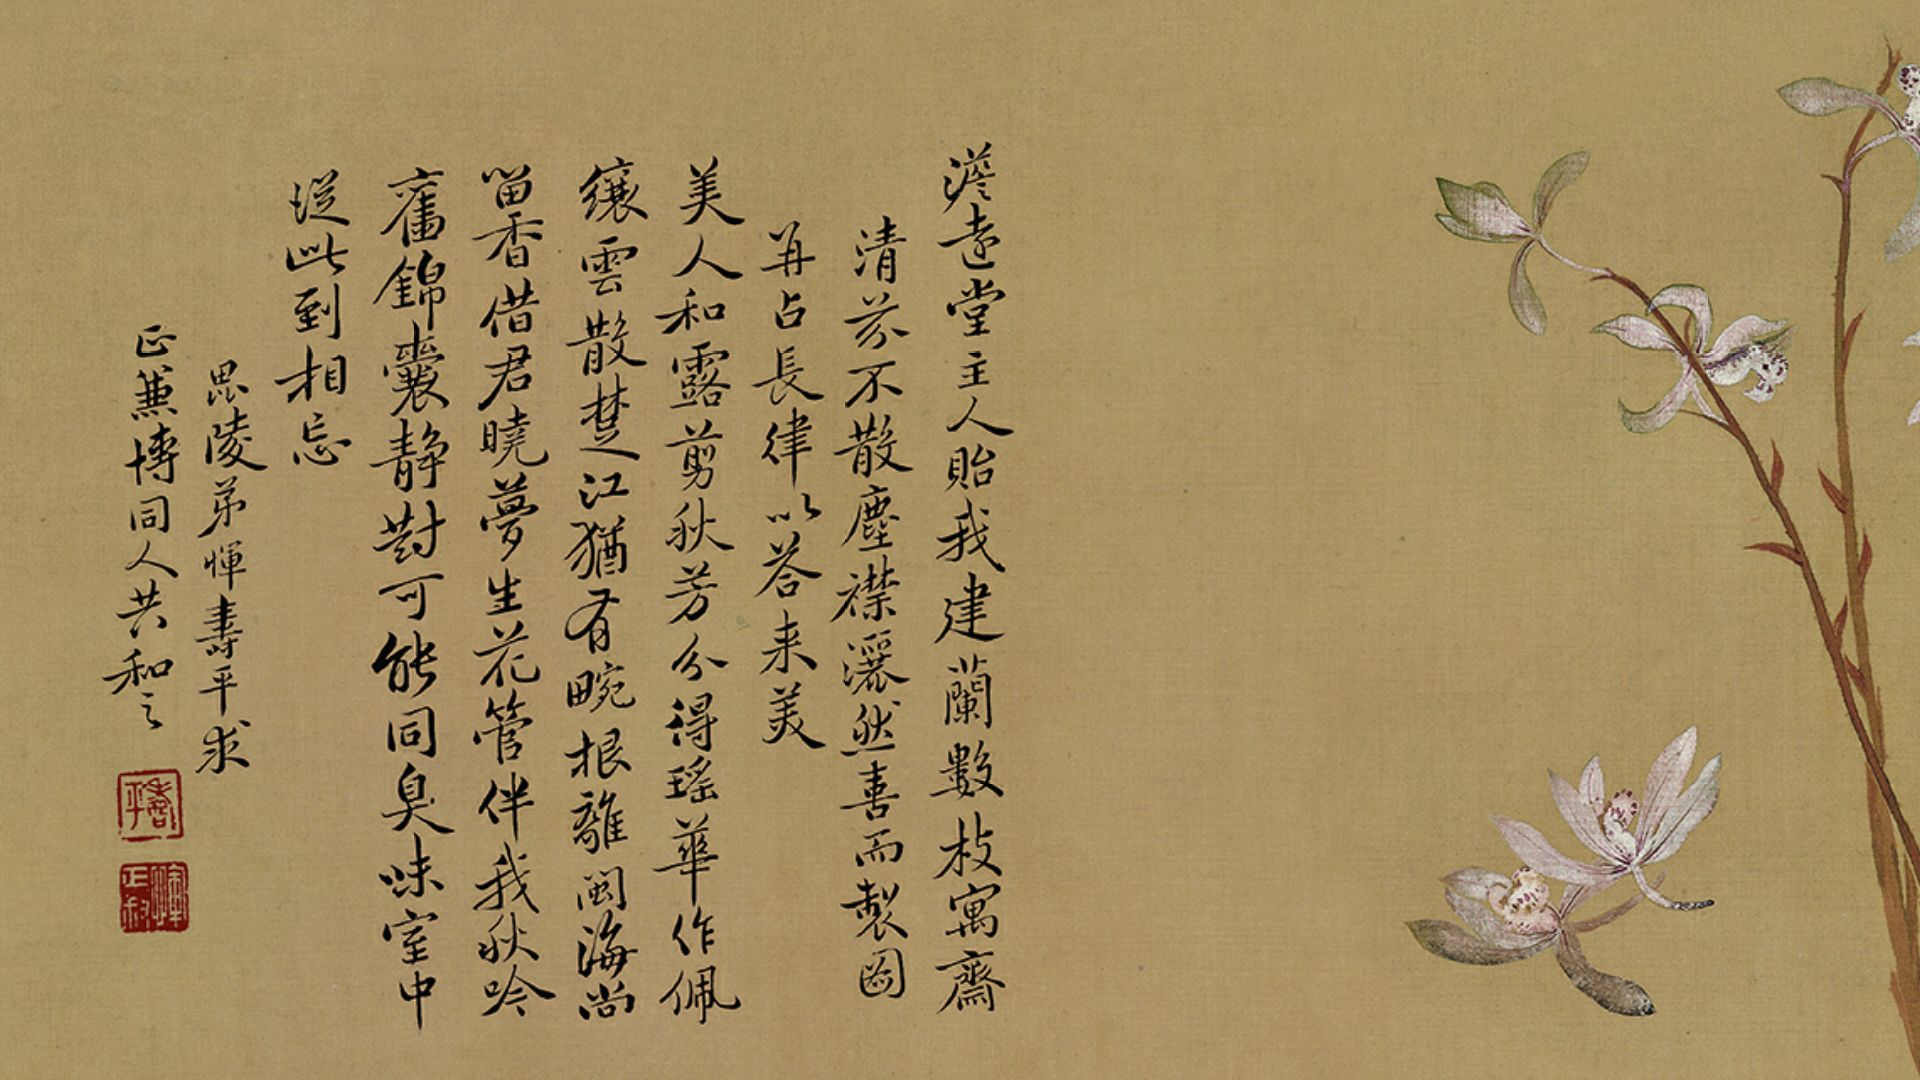 澹遠堂主人貽我建蘭數枝寓齋
清芬不散塵襟灑然喜而製圖
并占長律以荅来美
美人和露剪秋芳分得瑶華作佩
纕雲散楚江猶有畹根離閩海尚
留香借君曉夢生花管伴我秋吟
舊錦囊静對可能同臭味室中
從此到相忘
毘陵弟惲壽平求
正兼博同人共和之
壽平
惲正叔